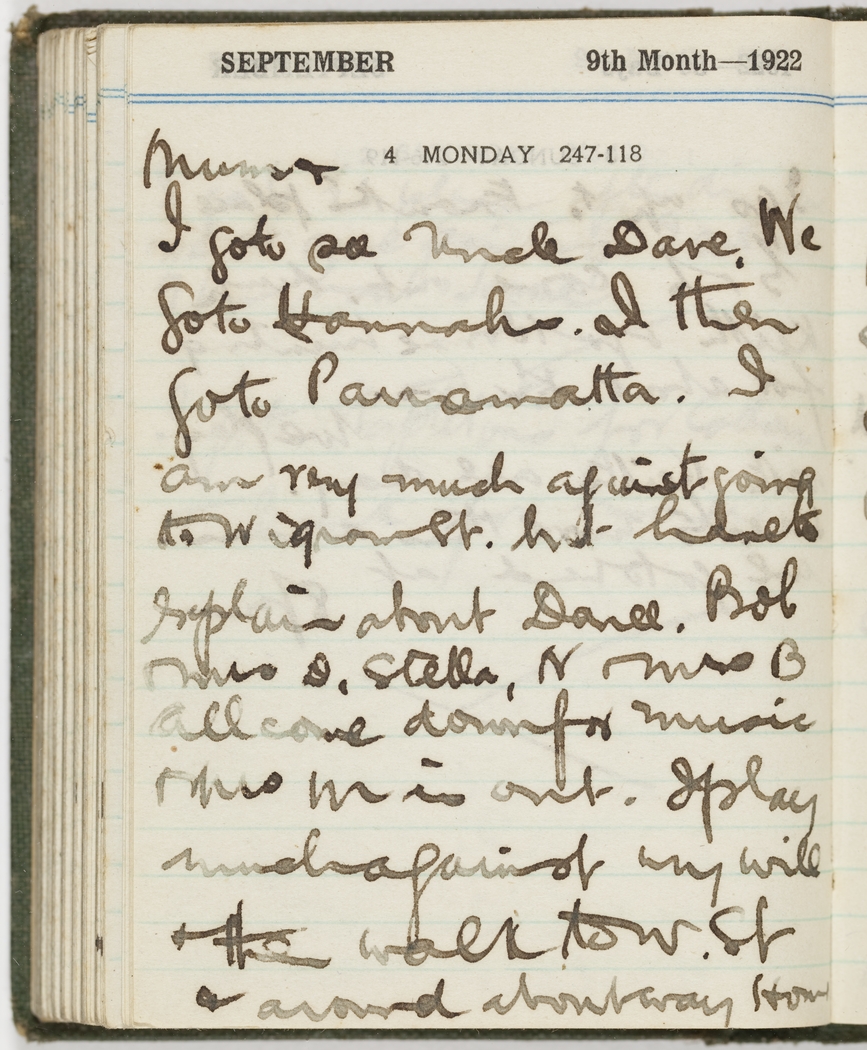 SEPTEMBER 9th Month—1922
4 MONDAY 247-118
I go to see Uncle Dave. We
go to Hannahs. I then
go to Parramatta. I
am very much against going
to St. but have to
explain about Bob
Mrs D, Stella, N Mrs B
all come down for music
Mrs M is out. I play
much against my will
+ the walk to W. St
& around about way Home